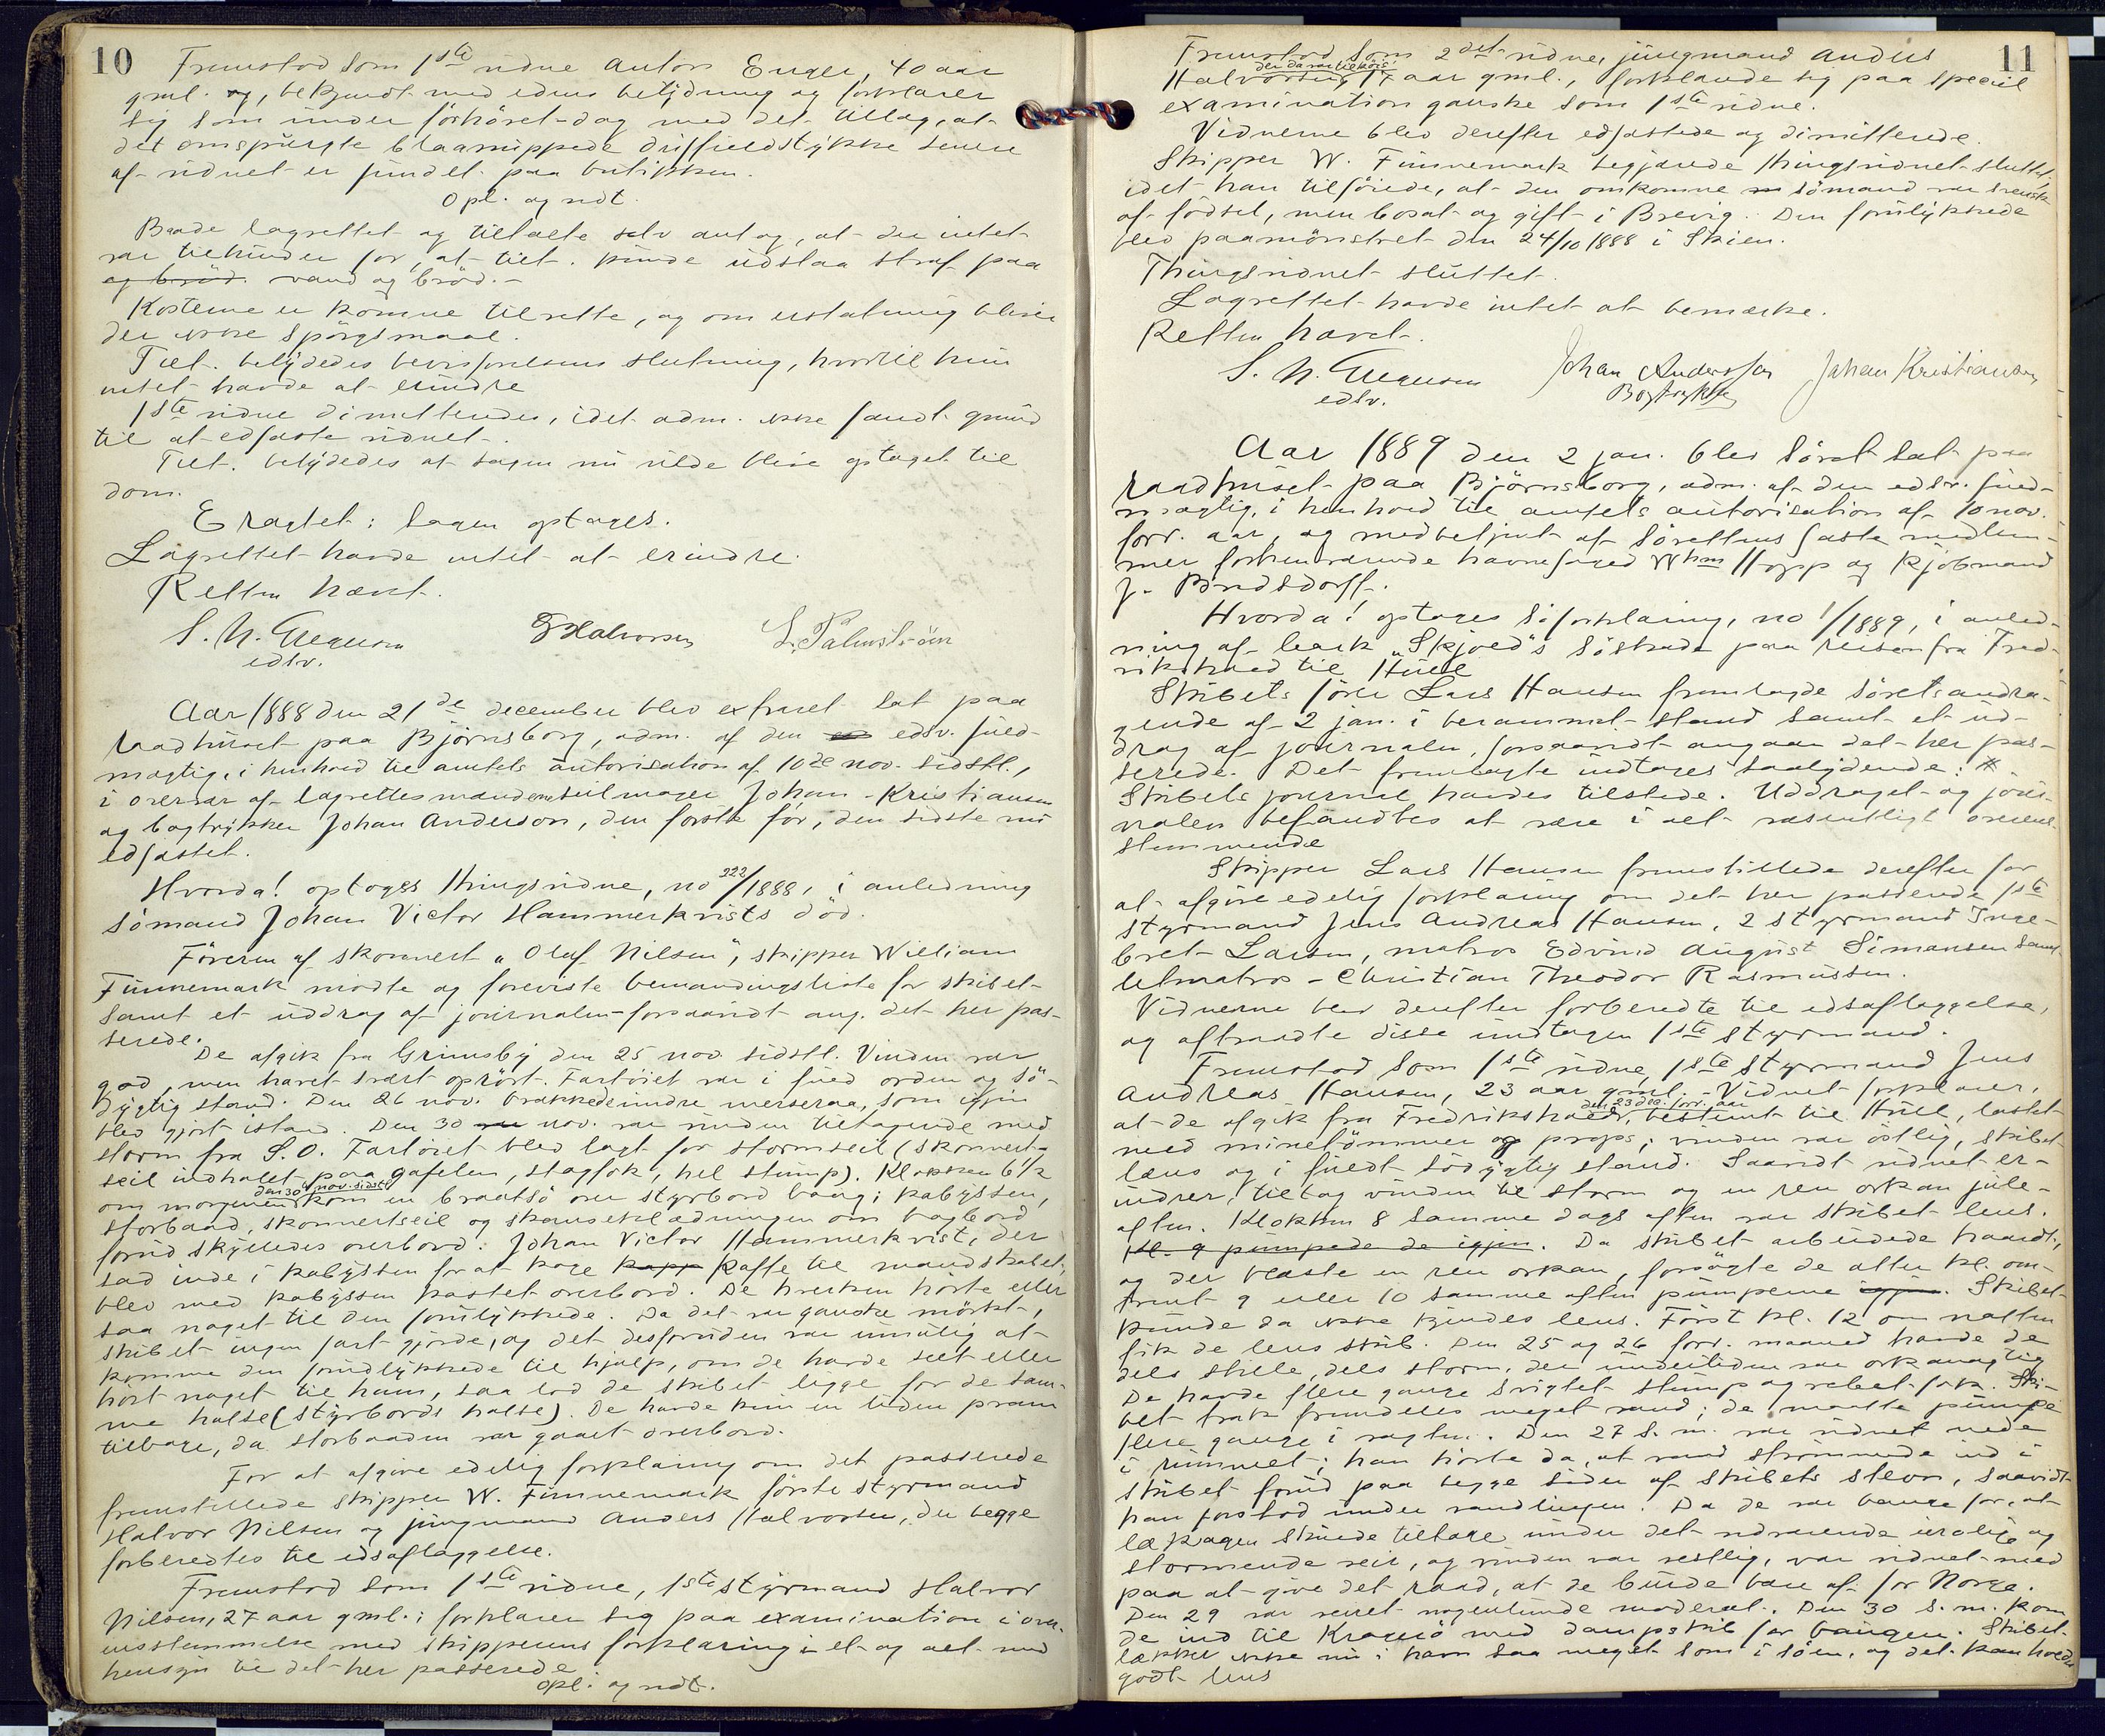 10
Fremstod som 1ste vidne Anton Enger, 40 aar
gml. og, bekjendt med edens betydning og forklarer
sig som under forhöret-dag med det tillæg, at
det omspurgte blaanuppede duffieldstykke senere
af vidnet er fundet paa butikken.
Opl. og vedt.
Baade lagrettet og tiltalte selv antog, at der intet
var tilhinder for, at tilt. kunde udstaa straf paa
og bröd. vand og bröd.-
Kosterne er komne tilrette, og om erstatning bliver
der ikke spörgsmaal.
Tilt. betydedes bevisförelsens slutning, hvortil hun
intet havde at erindre
1ste vidne dimitteredes, idet adm. ikke fandt grund
til at edfæste vidnet.
Tilt. betydedes at sagen nu vilde blive optaget til
dom.
Eragtet: Sagen optages.
Lagrettet havde intet at erindre.
Retten hævet.
S. N. Gregersen
edsv.
G Halvorsen
L. Palmström
Aar 1888 den 21de december blev extraret sat paa
raadhuset paa Björnsborg, adm. af den edsv. fuld-
mægtig, i henhold til amtets autorisation af 10de nov. sidstl.,
i overvær af lagrettesmændene seilmager Johan Kristiansen
og bogtrykker Johan Anderson, den förste för, den sidste nu
edfæstet.
Hvorda! optoges thingsvidne, no 223/1888, i anledning
sömand Johan Victor Hammerkvists död.
Föreren af skonnert "Olaf Nilsen", skipper William
Finnemark mödte og foreviste bemandingsliste for skibet
samt et uddrag af journalen forsaavidt ang. det her pas-
serede.
De afgik fra Grimsby den 25 nov. sidstl. Vinden var
god, men havet svært oprört. Fartöiet var i fuld orden og sö-
dygtig stand. Den 26 nov. brækkede indre merseraa, som igjen
blev gjort istand. Den 30 nov. var vinden tiltagende med
storm fra S.O. Fartöiet blev lagt for stormseil (skonnert-
seil indhalet paa gafelen, stagfok, hel stump). Klokken 6½
om morgenen den 30 nov. sidstl. kom en braatsö over styrbord boug; kabyssen,
storbaad, skonnertseil og skanseklædningen om bagbord
forud skylledes overbord. Johan Victor Hammerkvist, der
sad inde i kabyssen for at koge kaffe til mandskabet,
blev med kabyssen kastet overbord. De hverken hörte eller
saa noget til den forulykkede. Da det var ganske mörkt,
skibet ingen fart gjorde, og det desforuden var umulig at
komme den forulykkede til hjælp, om de havde seet eller
hört noget til ham, saa lod de skibet ligge for de sam-
me halse (styrbords halse). De havde kun en liden pram
tilbage, da storbaaden var gaaet overbord.
For at afgive edelig forklaring om det passerede
fremstillede skipper W. Finnemark förste styrmand
Halvor Nilsen og jungmand Anders Halvorsen, der begge
forberedtes til edsaflæggelse.
Fremstod som 1ste vidne, 1ste styrmand Halvor
Nilsen, 27 aar gml.; forklarer sig paa examination i over-
ensstemmelse med skipperens forklaring i et og alt med
hensyn til det her passerede.
Opl. og vedt.
11
Fremstod som 2det vidne, jungmand Anders
Halvorsen, den da var tilhøie! 17 aar gml., forklarede sig paa speciel
examination ganske som 1ste vidne.
Vidnerne blev derefter edfæstede og dimitterede.
Skipper W. Finnemark begjærede thingsvidnet sluttet,
idet han tilföiede, at den omkomne sömand var svensk
af födsel, men bosat og gift i Brevig. Den forulykkede
blev paamönstret den 24/10 1888 i Skien.
Thingsvidnet sluttet.
Lagrettet havde intet at bemærke.
Retten hævet.
S. N. Gregersen
edsv.
Johan Anderson
Bogtrykker
Johan Kristiansen
Aar 1889 den 2 jan. blev söret sat paa
raadhuset paa Björnsborg, adm. af den edsv. fuld-
mægtig, i henhold til amtets autorisation af 10 nov.
forr. aar, og medbetjent af sörettens faste medlem-
mer forhenværende havnefoged Whm Hopp og kjöbmand
J. Bredsdorff.
Hvorda! optages söforklaring, no 1/1889, i anled-
ning af bark "Skjold"s söskade paa reisen fra Fred-
rikshald til Hull
Skibets förer Lars Hansen fremlagde söretsandra-
gende af 2 jan. i berammet stand samt et ud-
drag af journalen, forsaavidt angaar det her pas-
serede. Det fremlagte indtages saalydende: #
Skibets journal havdes tilstede. Uddraget og jour-
nalen befandtes at være i alt væsentligt overens-
stemmende
Skipper Lars Hansen fremstillede derefter for
at afgive edelig forklaring om det her passerede 1ste
styrmand Jens Andreas Hansen, 2 styrmand Inge-
bret Larsen, matros Edvind August Simonsen samt
letmatros Christian Theodor Rasmussen.
Vidnerne blev derefter forberedte til edsaflæggelse,
og aftraadte disse undtagen 1ste styrmand.
Fremstod som 1ste vidne, 1ste styrmand Jens
Andreas Hansen, 23 aar gml. Vidnet forklarer,
at de afgik fra Fredrikshald, den 23 dec. forr. aar bestemt til Hull, lastet
med minetömmer og props; vinden var östlig, skibet
læns og i fuldt södygtig stand. Saavidt vidnet er-
indrer, tiltog vinden til storm og en ren orkan jule-
aften. Klokken 8 samme dags aften var skibet lens.
Kl. 9 pumpede de igjen. Da skibet arbeidede haardt,
og der blæste en ren orkan, forsögte de atter kl. om-
trent 9 eller 10 samme aften pumperne igjen. Skibet
kunde da ikke kjendes lens. Först kl. 12 om natten
fik de lens skib. Den 25 og 26 forr. maaned havde de
dels stille, dels storm, der undertiden var orkanagtig
De havde flere gange svigtet stump og rebet fok. Ski-
bet trak fremdeles meget vand; de maatte pumpe
flere gange i vagten. Den 27 s. m. var vidnet nede
i rummet; han hörte da, at vand strömmede ind i
skibet forud paa begge sider af skibets stevn, saavidt
han forstod under vandlinjen. Da de var bange for, at
lækagen skulde tiltage under det nærværende urolige og
stormende veir, og vinden var vestlig, var vidnet med
paa at give det raad, at de burde bære af for Norge.
Den 29 var veiret nogenlunde moderat. Den 30 s. m. kom
de ind til Kragerö med dampskib for bougen. Skibet
lækker ikke nu i havn saa meget som i söen, og det kan holdes
godt lens